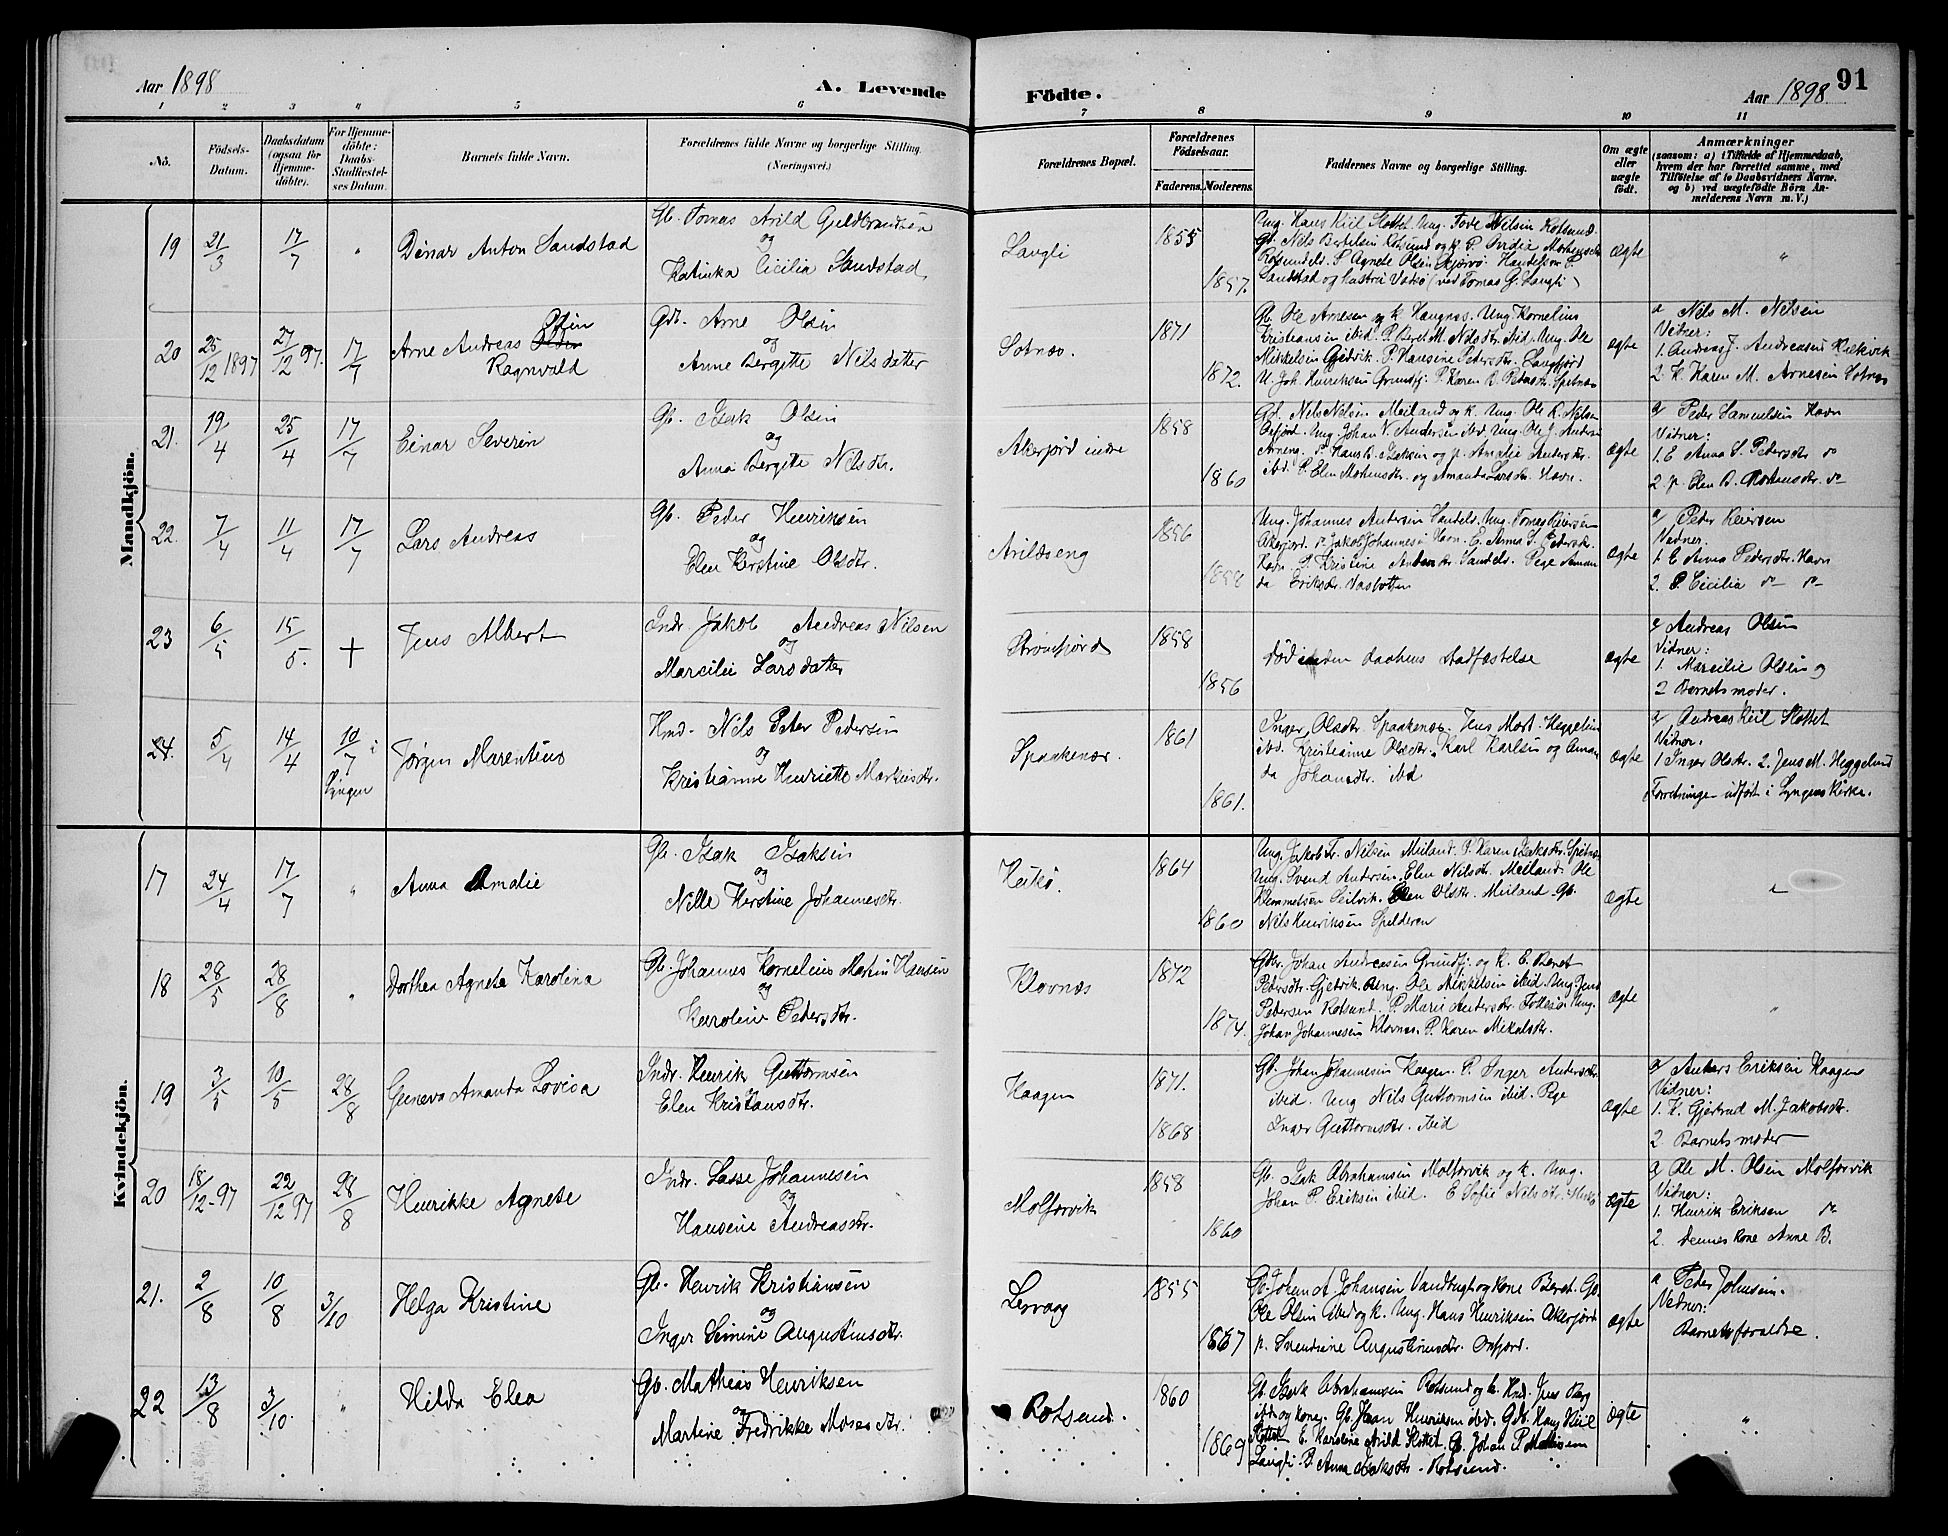 Aar 1898
A. Levende
Födte.
Aar 1898
91
1 2 3 " 5 6 7 8 9 10 11
No.
Födsels-
Datum.
Daabsdatum
(ogsaa for
Hjemme-
döbte).
For Hjemme-
döbte:
Daabs-
Stadfæstel-
ses Datum.
Barnets fulde Navn.
Forældrenes fulde Navne og borgerlige Stilling.
(Næringsvei.)
Forældrenes Bopæl.
Forældrenes
Födselsaar.
Faderens. Moderens.
Faddernes Navne og borgerlige Stilling.
Om ægte
eller
uægte
födt.
Anmærkninger
(saasom: a) i Tilfælde af Hjemmedaab,
hvem der har forrettet samme, med
Tilföielse af to Daabsvidners Navne,
og b) ved uægtefödte Börn An-
melderens Navn m.V.)
Mandkjön.
19 21/3 17/7 " Dinar Anton Sandstad
Gb. Tomas Arild Gjeldbrandsen
og
Katinka Cicilia Sandstad
Langli 1855 1857.
Ung. Hans Kiil Slottet. Ung. Tode Nilsen Rotsund.
Gb. Nils Bertelsen Rotsund og k. P. Ovidie Mortensdtr
Rotsundelv. P. Agnete Olsen Skjervö. Handelsm. P.
Sandstad og hustru Vadsö (ved Tomas G. Langli)
Ægte "
20 25/12 1897 27/12 97. 17/7 Arne Andreas Olsen
Ragnvald
Gdb. Arne Olsen
og
Anne Bergitte Nilsdatter
Sotnæs. 1871 1872.
Gb. Ole Arnesen og k. Haugnæs. Ung Kornelius
Kristiansen ibid. P. Beret M. Nilsdtr. ibid. Ung. Ole
Mikkelsen Gjedvik. P. Hansine Pedersdtr. Langfjord
U. Joh. Henriksen Grundfj. P. Karen R. Pedersdtr. Spitnæs
Ægte
a Nils M. Nilsen
Vidner:
1. Andreas J. Andreasen
2. K. Karen M. Arnesen Sotnæs
21. 19/4 25/4 17/7 Einar Severin
Gb. Isak Olsen
og
Anna Bergitte Nilsdtr.
Akerfjord indre 1858 1860
Gb. Nils Nilsen Meiland og k. Ung. Ole R. Nilsen
Oxfjord. Ung Johan N. Andersen ibid. Ung. Ole J. Andersen
ibid. P. Elen Mortensdtr. og Amanda Larsdtr. Havn.
Ægte
a/ Peder Samuelsen Havn
Vidner:
1. E Anna S. Pedersdtr do
2. p. Elen B. Mortensdtr. do
22. 7/4 11/4 17/7 Lars Andreas
Gb. Peder Henriksen
og
Elen Kerstine Olsdtr.
Arildseng 1856 1858
Ung. Johannes Andersen Sandelv. Ung. Tomas Reiersen
Akerfjord. do Jakob Johannesen Havn. E. Anna S. Pedersdtr.
Havn. P. Kristine Andersdtr. Sandelv. Pige Aman
da Eriksdtr. Vasbotten
Ægte
a/ Peder Reiersen
Vidner:
1. E Anna Pedersdtr. Havn
2. P. Cicilia do do
23 6/5 15/5. + Jens Albert
Indr. Jakob Andreas Nilsen
og
Marcilie Larsdatter
Strömfjord 1858 1856
död inden daabens stadfæstelse
Ægte
a/ Andreas Olsen
Vidner:
1. Marcilie Olsen og
2 Barnets moder.
24. 5/4 14/4 10/7 i
Lyngen
Jørgen Marentius
Hmd. Nils Peter Pedersen
og
Kristianne Henriette Martinsdtr.
Spaakenæs. 1861 1861.
Inger Olsdtr. Spaakenæs. Jens Mort. Heggelun
ibid. Kristianne Olsdtr. Karl Karlsen og Aman
da Johansdtr. ibid
Ægte
a/ Andreas Kiil Slottet
Vidner:
1 Inger Olsdtr. 2. Jens M. Heggelund
Forretningen udført i Lyngens Kirke.
Kvindekjön.
17 24/4 17/7 " Anna Amalie
Gb. Isak Isaksen
og
Nille Kerstine Johannesdtr.
Heikö. 1864 1860
Ung. Jakob Fr. Nilsen Meiland. P. Karen Isaksdtr. Spitnæs
Ung. Svend Andersen. Elen Nilsdtr. Meiland. Ole
Klemmetsen Seilvik. Elen Olsdtr. Meiland. Gb.
Nils Henriksen Spilderen
Ægte "
18 28/5 28/8 " Dorthea Agnete Karolina
Gb. Johannes Kornelius Martin Hansen
og
Karoline Pedersdtr.
Klovnæs 1872 1874.
Gbr. Johan Andreasen Grundfj. og k. E. Beret
Pedersdtr. Gjedvik. Ung. Ole Mikkelsen ibid. Ung. Jens
Petersen Rotsund. P. Marie Andersdtr. Follesöi Ung.
Johan Johannesen Klovnæs. P. Karen Mikalsdtr.
Ægte "
19 3/5 10/5 28/8 Geneva Amanda Lovisa
Indr. Henrik Guttormsen
og
Elen Kristansdtr.
Haagen 1871. 1868
Gb. Johan Johannesen Haagen. P. Inger Andersdtr.
ibid. Ung Nils Guttormsen ibid. Pige
Inger Guttormsdtr. ibid
Ægte
a/ Anders Eriksen Haagen
Vidner:
1. K. Gjertrud M. Jakobsdtr.
2. Barnets moder
20 18/12-97 22/12 97 28/8 Henrikke Agnete
Indr. Lasse Johannesen
og
Hansine Andreasdtr.
Molforvik 1858 1860
Gb. Isak Abrahamsen Molforvik og k. Ung.
Johan P. Eriksen ibid. E Sofie Nilsdtr. Heikö
Ægte
a Ole M. Olsen Molforvik
Vidner:
1. Henrik Eriksen do
2. dennes kone Anne B.
21. 2/8 10/8 3/10 Helga Kristine
Gb. Henrik Kristiansen
og
Inger Simine Augustinusdtr.
Lervaag 1855 1867
Gb. Johan A Johansen Vandbugt og kone Beret. Gb.
Ole Olsen ibid og k. Ung. Hans Henriksen Akerfjord
p. Svendsine Augustinusdtr. Oxfjord.
Ægte
a Peder Johnsen.
Vidner:
Barnets forældre.
22 13/8 3/10. " Hilda Elea
Gb. Mathias Henriksen
og
Martine Fredrikke Mosesdtr.
Rotsund. 1860 1869
Gb. Isak Abrahamsen Rotsund og k. Hnd. Jens Berg
ibid og kone. Gb. Johan Henriksen ibid. Gdb. Hans Kiil
Slottet E. Karoline Arild Slottet. Gb. Johan P. Mathisen
Langli. P. Anna Isaksdtr. Rotsund.
Ægte "